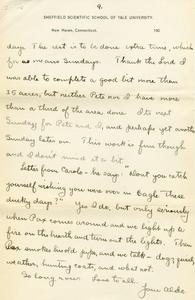 9.
SHEFFIELD SCIENTIFIC SCHOOL OF YALE UNIVERSITY.
New Haven, Connecticut. 190
days. The rest is to be done extra time, which
for us means Sundays. Thank the Lord I
was able to complete a good bit more than
35 acres, but neither Pete nor I have more
than a third of the area done. It's next
Sunday for Pete and I, and perhaps yet another
Sunday later on. This work is fun though
and I don't mind it a bit.
Letter from Carolo - he say: "Don't you catch
yourself wishing you were over in Eagle these
ducky days?" Yes I do, but only seriously
when Pax comes around and we light up a
fire on the hearth and turn out the lights. Then
Pax smokes his old pipe, and we talk - dogs, guns,
weather, hunting coats, and what not.
So long now. Love to all.
Your Aldo